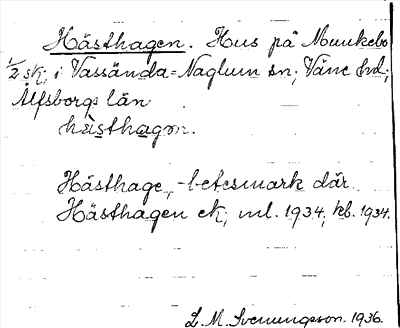 Hästhagen. Hus på Munkebo
1/2 sk; i Vassända=Naglum sn; Väne hd;
Älfsborgs län
hästhagɷn.
Hästhage, -betesmark där.
Hästhagen ek; ml. 1934; kb. 1934.
L. M. Svenungsson. 1936.